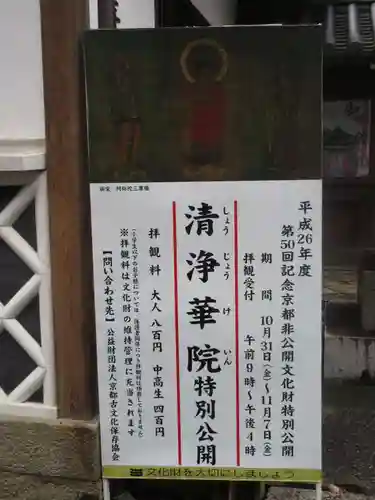 寺宝 阿弥陀三尊像
平成26年度
第50回記念京都非公開文化財特別公開
期間 10月31日(金)~11月7日(金)
拝観受付 午前9時~午後4時
しょう じょう け いん
清浄華院特別公開
拝観料 大人 八百円 中高生 四百円
※拝観料は文化財の維持管理に充当されます
【問い合わせ先】公益財団法人京都古文化保存協会
文化財を大切にしましょう